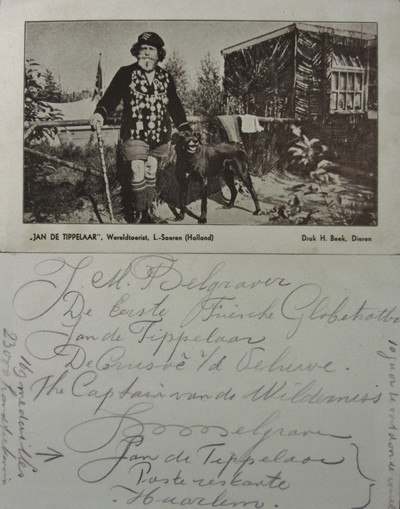 „JAN DE TIPPELAAR", Wereldtoerist, L.-Soeren (Holland)
Druk H. Beek, Dieren
J. M. Belgraver
De Eerste Friesche Globetrotter
Jan de Tippelaar
De Crusoë v/d Veluwe.
The Captain van de Wilderniss
Belgraver
Jan de Tippelaar
Poste restante
Haarlem.
169 medailles
23000
10 jaar